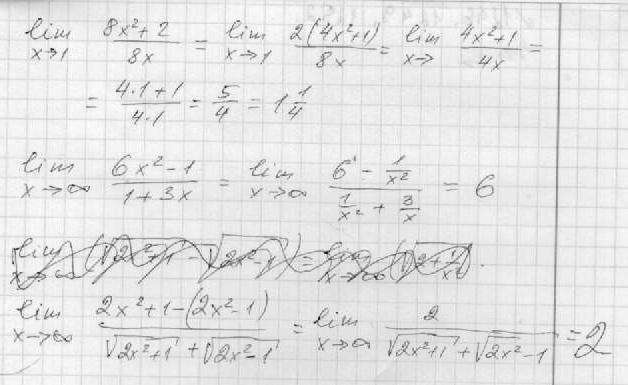 lim x→1 (8x²+2)/(8x) = lim x→1 2(4x²+1)/(8x) = lim x→ (4x²+1)/(4x) =
= (4·1+1)/(4·1) = 5/4 = 1 1/4
lim x→∞ (6x²-1)/(1+3x) = lim x→∞ (6 - 1/x²)/(1/x² + 3/x) = 6
lim x→∞ (2x²+1-(2x²-1))/(√(2x²+1) + √(2x²-1)) = lim x→∞ 2/(√(2x²+1) + √(2x²-1)) = 2